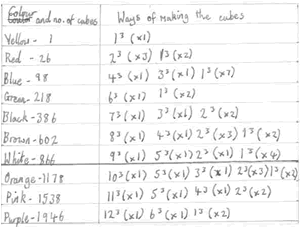 Colour and no. of cubes Ways of making the cubes
Yellow - 1 1³ (x1)
Red - 26 2³ (x3) 1³ (x2)
Blue - 98 4³ (x1) 3³ (x1) 1³ (x7)
Green - 218 6³ (x1) 1³ (x2)
Black - 386 7³ (x1) 3³ (x1) 2³ (x2)
Brown - 602 8³ (x1) 4³ (x1) 2³ (x3) 1³ (x2)
White - 866 9³ (x1) 5³ (x1) 2³ (x1) 1³ (x4)
Orange - 1178 10³ (x1) 5³ (x1) 3³ (x1) 2³ (x3) 1³ (x2)
Pink - 1538 11³ (x1) 5³ (x1) 4³ (x1) 2³ (x2)
Purple - 1946 12³ (x1) 6³ (x1) 1³ (x2)